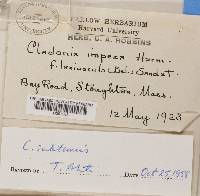 FARLOW HERBARIUM
Harvard University
HERB. C. A. ROBBINS
Cladonia impexa Harm.
f. laxiuscula (Del.) Sandst.
Bay Road, Stoughton, Mass.
12 May 1923
C. subtenuis
Det. Oct 25, 1958